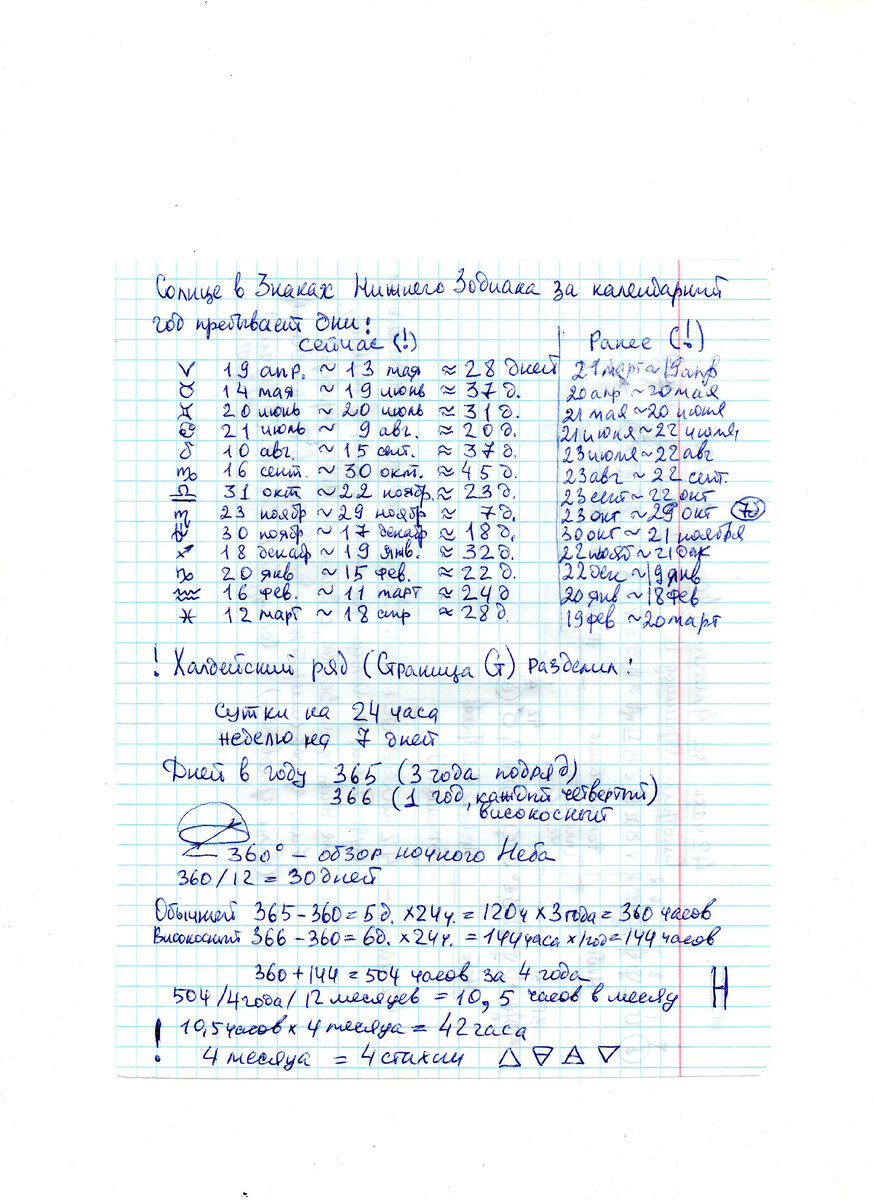 Солнце в Знаках Нижнего Зодиака за календарный
год пребывает дни:
сейчас (!) Ранее (!)
♈ 19 апр. ~ 13 мая ≈ 28 дней 21 март ~ 19 апр
♉ 14 мая ~ 19 июнь ≈ 37 д. 20 апр ~ 20 мая
♊ 20 июнь ~ 20 июль ≈ 31 д. 21 мая ~ 20 июня
♋ 21 июль ~ 9 авг. ≈ 20 д. 21 июня ~ 22 июля,
♌ 10 авг. ~ 15 сент. ≈ 37 д. 23 июля ~ 22 авг
♍ 16 сент. ~ 30 окт. ≈ 45 д. 23 авг ~ 22 сент.
♎ 31 окт ~ 22 ноябр. ≈ 23 д. 23 сент ~ 22 окт
♏ 23 ноябр ~ 29 ноябр ≈ 7 д. 23 окт ~ 29 окт 7д
⛎ 30 ноябр ~ 17 декабр ≈ 18 д, 30 окт ~ 21 ноября
♐ 18 декабр ~ 19 янв. ≈ 32 д. 22 нояб ~ 21 дек
♑ 20 янв ~ 15 фев. ≈ 22 д. 22 дек ~ 19 янв
♒ 16 фев. ~ 11 март ≈ 24 д 20 янв ~ 18 фев
♓ 12 март ~ 18 апр ≈ 28 д. 19 фев ~ 20 март
! Халдейский ряд (Страница G) разделил:
Сутки на 24 часа
Неделю на 7 дней
Дней в году 365 (3 года подряд)
366 (1 год, каждый четвертый)
високосный
360° – обзор ночного Неба
360/12 = 30 дней
Обычный 365 - 360 = 5 д. × 24 ч. = 120 ч × 3 года = 360 часов
Високосный 366 - 360 = 6 д. × 24 ч. = 144 часа × 1 год = 144 часов
360 + 144 = 504 часов за 4 года
504 / 4 года / 12 месяцев = 10,5 часов в месяц H
! 10,5 часов × 4 месяца = 42 часа
4 месяца = 4 стихии 🜂 🜃 🜁 🜄